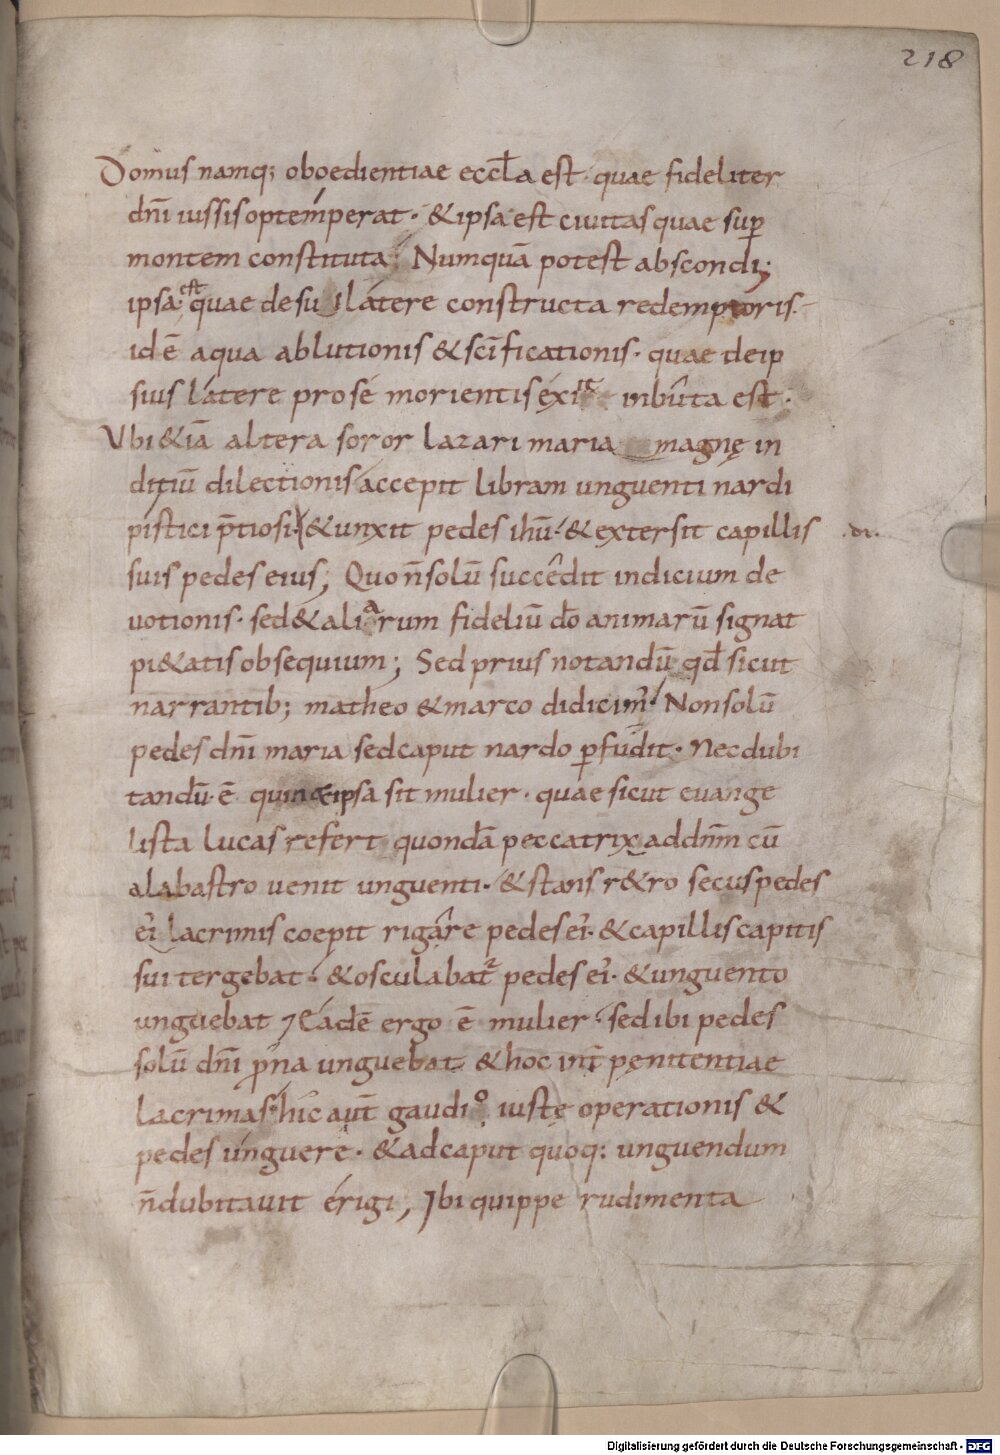 218
Domus namq; oboedientiae eccła est quae fideliter
dnī iussis optemperat · & ipsa est ciuitas quae sup
montem constituta Numquā potest abscondi;
ipsa est quae de sui latere constructa redemptoris ·
id ē aqua ablutionis & scīficationis · quae de ip
sius latere pro se morientis exiit inbuta est ·
Vbi & iā altera soror lazari maria magnę in
ditiū dilectionis accepit libram unguenti nardi
pistici p̄tiosi · & unxit pedes ihū · & extersit capillis · di ·
suis pedes eius; Quo n̄ solū succedit indicium de
uotionis · sed & aliarum fideliū dō animarū signat
pi&atis obsequium; Sed prius notandū qđ sicut
narrantib; matheo & marco didicim' Non solū
pedes dnī maria sed caput nardo pfudit · Nec dubi
tandū ē quin & ipsa sit mulier · quae sicut euange
lista lucas refert quondā peccatrix ad dnm̄ cū
alabastro uenit unguenti · & stans r&ro secus pedes
ei' lacrimis coepit rigare pedes ei' · & capillis capitis
sui tergebat · & osculabat' pedes ei' · & unguento
unguebat 7 Eadē ergo ē mulier · sed ibi pedes
solū dnī prona unguebat & hoc int̄ pęnitentiae
lacrimas · hic aut̄ gaudio iustę operationis &
pedes unguere · & ad caput quoq: unguendum
n̄ dubitauit erigi, Ibi quippe rudimenta
Digitalisierung gefördert durch die Deutsche Forschungsgemeinschaft - DFG